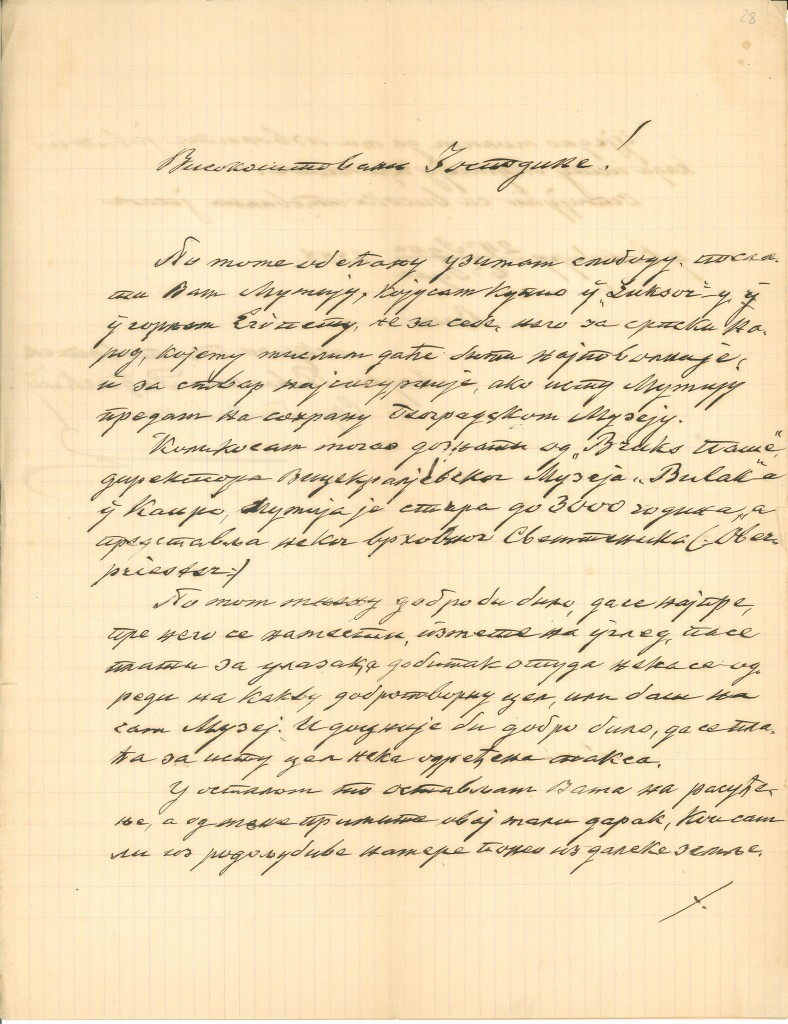 28
Високоштовани Господине!
По моме обећању узимам слободу, посла-
ти Вам Мумију, којусам купио ў „Luksor"-у, ў
ў горњем Египту, не за себе, него за српски на-
род, којему мислим даће бити најповолније,
и за ствар најсигурније, ако исту Мумију
предам на сохрану Београдском Музеју.
Количосам могао дознати од „Bruks Паше",
директора Вицекраљевског Музеја „Bulak"-а
ў Каиро, Мумија је стара до 3000 година, а
представља неког врховног Свештеника (:Ober-
priester:)
По мом мњењу добро би било, дасе најпре,
пре него се намести, ўзмете на ўглед, пасе
плати за улазак, а добитак отуда нека се од-
реди на какву добротворну цел, или баш на
сам Музеј. И доцније би добро било, да се пла-
ћа за исту цел нека одређена такса.
У осталом то остављам Вама на расуђе-
ње, а од мене примите овај мали дарак, Коисам
ли из родољубиве намере понео из далеке земље.